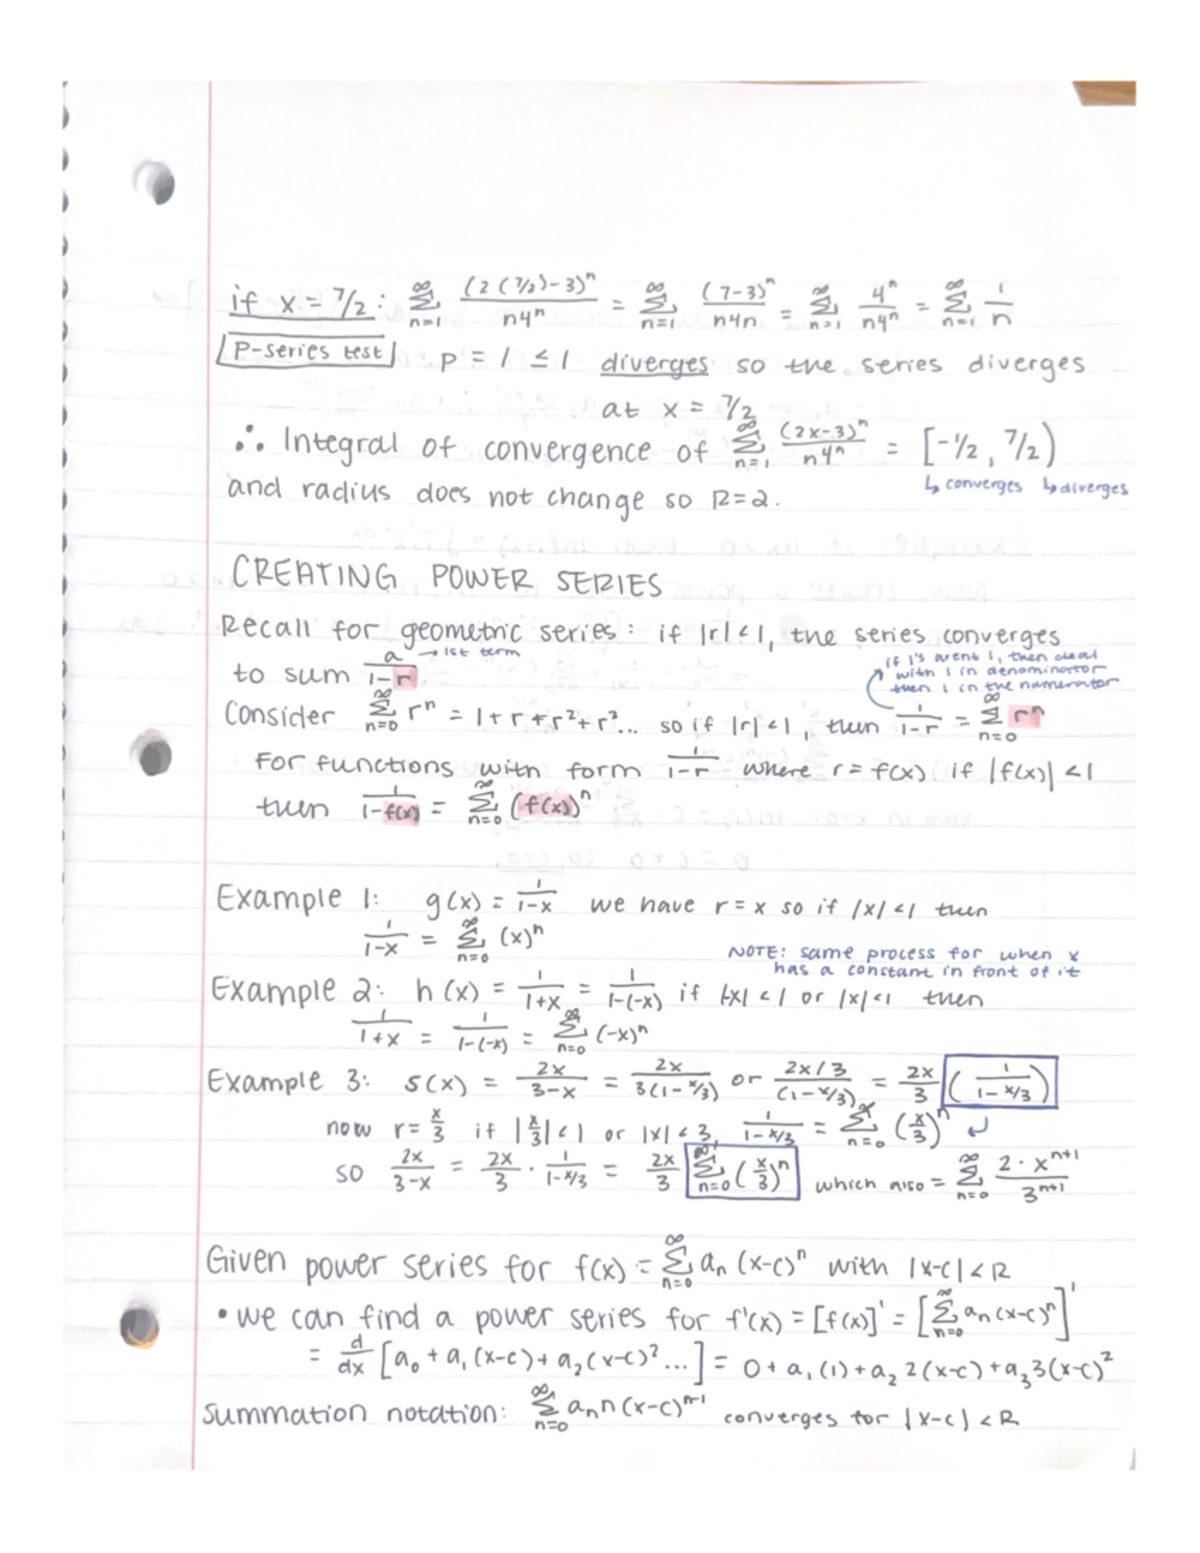 if x = 7/2 : ∞Σn=1 (2(7/2)-3)^n / n4^n = ∞Σn=1 (7-3)^n / n4n = ∞Σn=1 4^n / n4^n = ∞Σn=1 1/n
P-series test p = 1 ≤ 1 diverges so the series diverges
at x = 7/2
∴ Integral of convergence of ∞Σn=1 (2x-3)^n / n4^n = [-1/2, 7/2)
↳ converges ↳ diverges
and radius does not change so R=2.
CREATING POWER SERIES
Recall for geometric series: if |r|<1, the series converges
to sum a/1-r → 1st term
if 1's arent 1, then deal
with 1 in denominator
then 1 in the numerator
Consider ∞Σn=0 r^n = 1+r+r²+r³... so if |r|<1, then 1/1-r = ∞Σn=0 r^n
For functions with form 1/1-r where r = f(x) if |f(x)| <1
then 1/1-f(x) = ∞Σn=0 (f(x))^n
Example 1: g(x) = 1/1-x we have r = x so if |x|<1 then
1/1-x = ∞Σn=0 (x)^n
NOTE: same process for when x
has a constant in front of it
Example 2: h(x) = 1/1+x = 1/1-(-x) if |-x| <1 or |x|<1 then
1/1+x = 1/1-(-x) = ∞Σn=0 (-x)^n
Example 3: s(x) = 2x/3-x = 2x/3(1-x/3) or 2x/3/(1-x/3) = 2x/3 (1/1-x/3)
now r = x/3 if |x/3|<1 or |x|<3, 1/1-x/3 = ∞Σn=0 (x/3)^n ↵
so 2x/3-x = 2x/3 · 1/1-x/3 = 2x/3 ∞Σn=0 (x/3)^n which also = ∞Σn=0 2·x^n+1 / 3^n+1
Given power series for f(x) = ∞Σn=0 an (x-c)^n with |x-c|<R
• we can find a power series for f'(x) = [f(x)]' = [∞Σn=0 an(x-c)^n]'
= d/dx [a0 + a1(x-c)+ a2(x-c)²...] = 0 + a1(1)+a2 2(x-c)+a3 3(x-c)²
summation notation: ∞Σn=0 an n(x-c)^n-1 converges for |x-c|<R